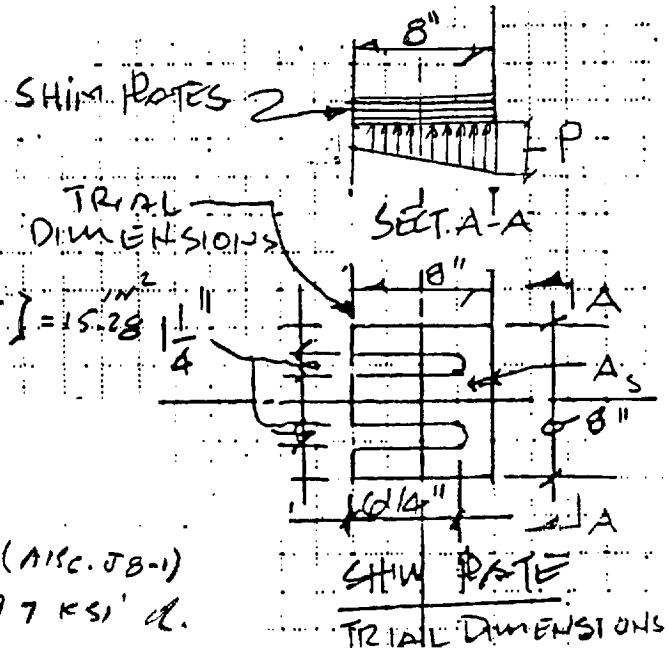 8"
SHIM PLATES
P
TRIAL
DIMENSIONS
SECT. A-A
8"
] = 15.28 in²
1 1/4"
A
As
8"
6 1/4"
A
(AISC. J8-1)
7 KSI
SHIM PLATE
TRIAL DIMENSIONS